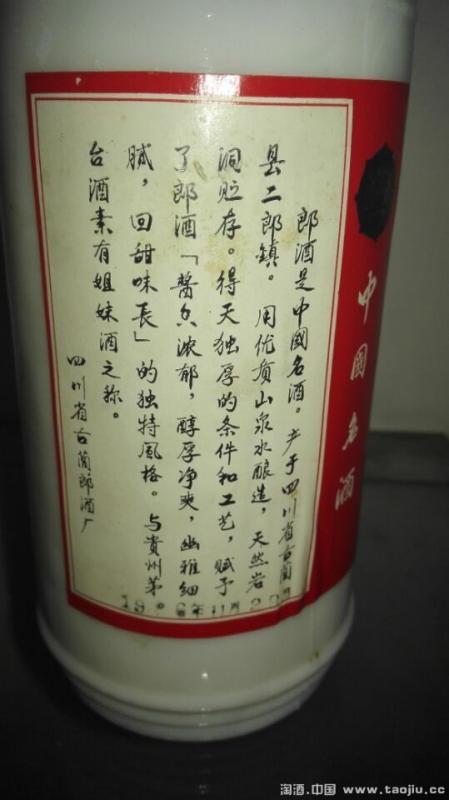 郎酒是中國名酒。产于四川省古蔺
县二郎鎮。用优质山泉水酿造，天然岩
洞贮存。得天独厚的条件和工艺，赋予
了郎酒「醬香浓郁，醇厚净爽，幽雅细
腻，回甜味長」的独特風格。与貴州茅
台酒素有姐妹酒之称。
四川省古蔺郎酒厂
中國名酒
淘酒.中国 www.taojiu.cc